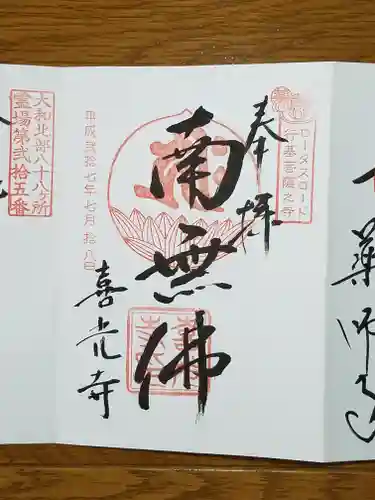 ロータスロード
行基菩薩之寺
奉拝
南無佛
平成弐拾七年七月拾八日
喜光寺
大和北部八十八ヶ所
霊場第弐拾五番
薬師寺